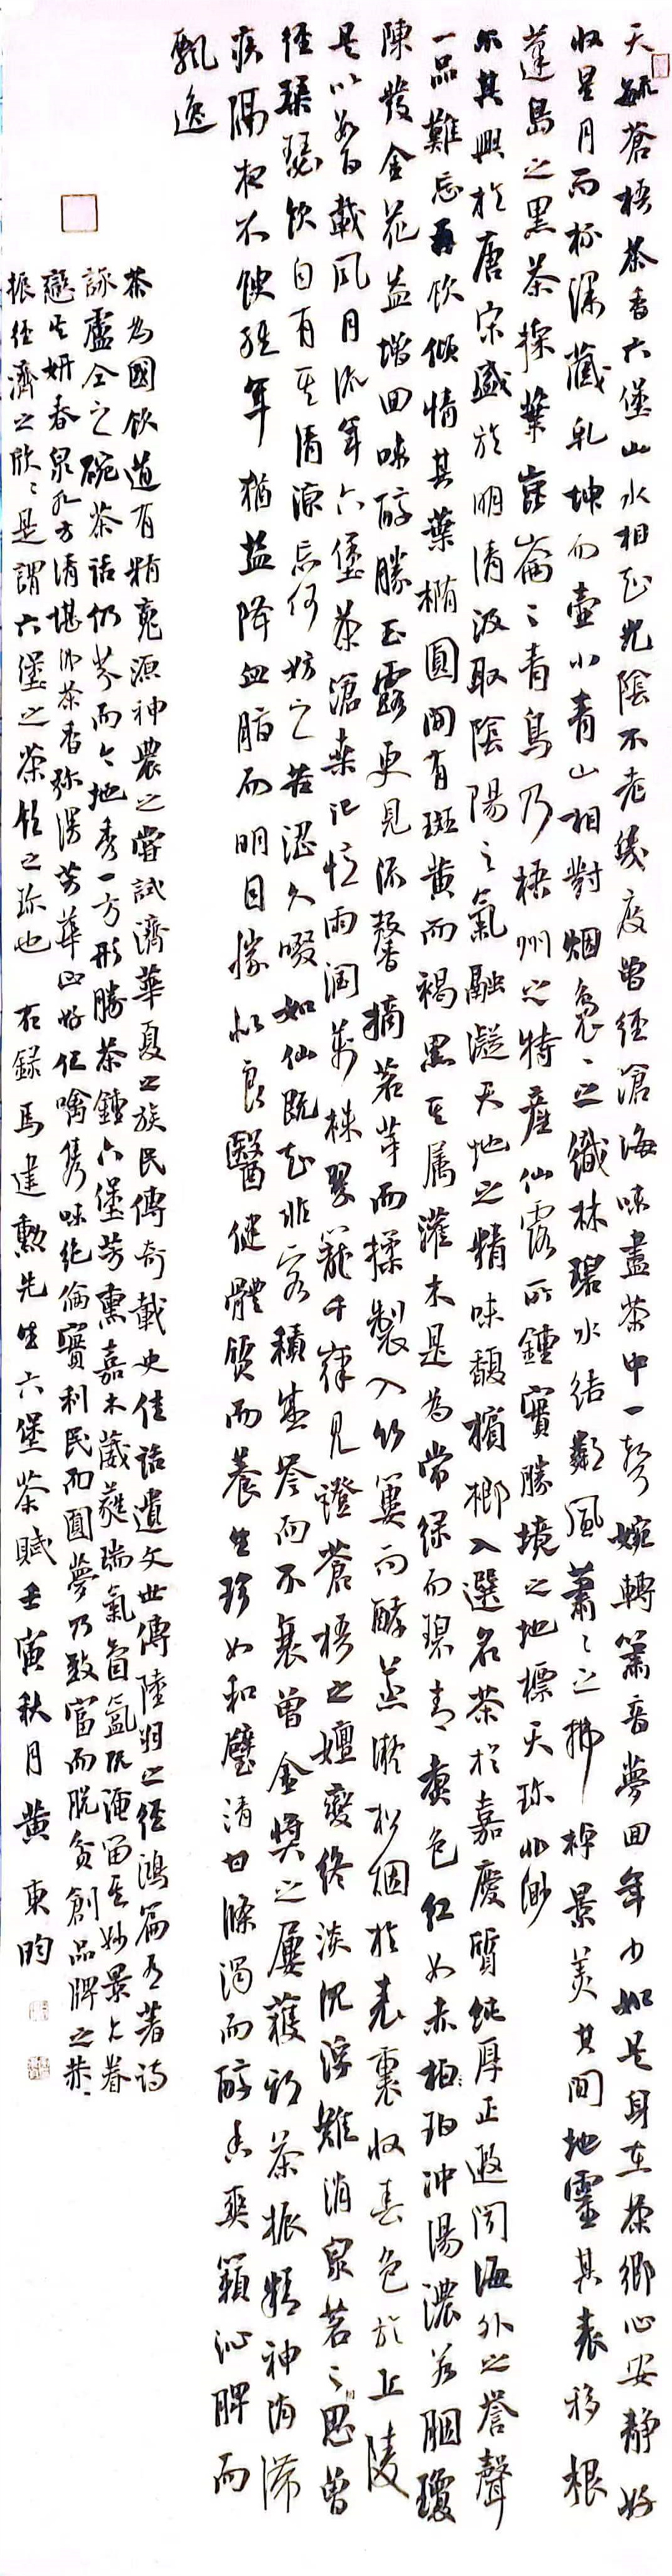 天毓蒼梧茶香六堡山水相知光陰不老幾度曾經滄海味盡茶中一聲婉轉簫音夢回年少如是身在茶鄉心安靜好
收星月而杯深藏乾坤而壺小青山相對烟裊裊之織林碧水結鄰風蕭蕭之拂棹景美其間地靈其表移根
蓬島之黑茶採葉崑崙之青鳥乃梧州之特產仙露所鍾實勝境之地標天珍非渺
爾其興於唐宋盛於明清汲取陰陽之氣融凝天地之精味馥檳榔入選名茶於嘉慶質純厚正遐聞海外之譽聲
一品難忘再飲傾情其葉橢圓間有斑黃而褐黑其屬灌木是為常綠而碧青黃色紅如赤柏珀沖湯濃若胭瓊
陳發金花益增回味醇勝玉露更見添馨摘茗芽而揉製入竹簍而酵蒸凝松烟於表裏收春色於丘陵
是以數百載風月流年六堡茶滄桑記憶雨潤萬株翠籠千嶂見證蒼梧之嬗變終淡沉浮難消泉茗之思曾
徑琴瑟飲自有其清源忘何妨之苦澀久啜如仙既知非客積盛譽而不衰曾金獎之屢獲初茶振精神消滯
疾隔夜不餿經年猶益降血脂而明目勝似良醫健體質而養生珍如和璧清甘滌濁而醇香爽籟沁脾而
飄逸
茶為國飲道有精魂源神農之嘗試濟華夏之族民傳奇載史佳話遺文世傳陸羽之經鴻篇有著詩
詠盧仝之碗茶話仍芬而今地秀一方形勝茶鍾六堡芳熏嘉木葳蕤瑞氣氤氳既漣留其妙景占眷
戀生妍春泉九方清堪沏茶香弥漫芳華正好任噙雋味絕倫實利民而圓夢乃致富而脫貧創品牌之恭恭
振經濟之欣欣是謂六堡之茶飲之珍也 右錄馬建勲先生六堡茶賦壬寅秋月黃東昀